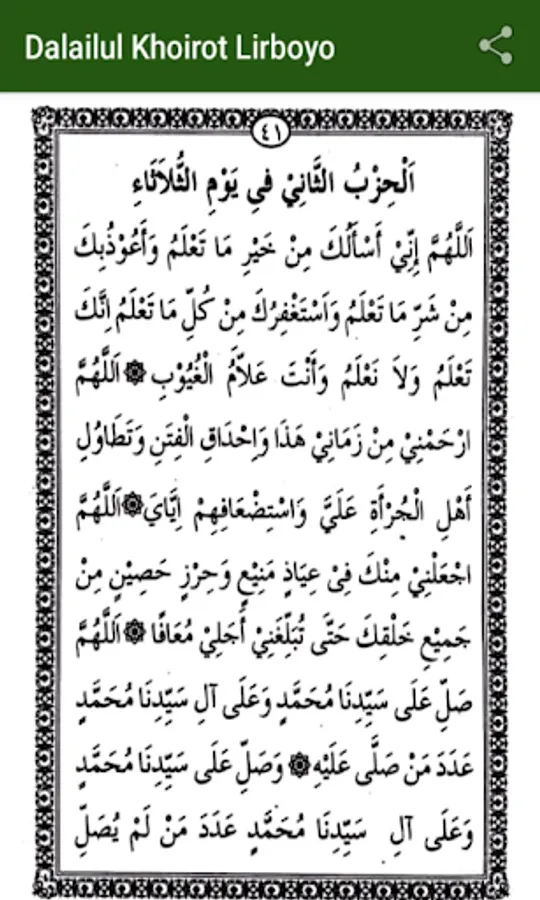 Dalailul Khoirot Lirboyo
٤١
اَلْحِزْبُ الثَّانِيْ فيِ يَوْمِ الثُّلَاثَاءِ
اَللَّهُمَّ إِنِّيْ أَسْأَلُكَ مِنْ خَيْرِ مَا تَعْلَمُ وَأَعُوْذُبِكَ
مِنْ شَرِّ مَا تَعْلَمُ وَاَسْتَغْفِرُكَ مِنْ كُلِّ مَا تَعْلَمُ اِنَّكَ
تَعْلَمُ وَلَا نَعْلَمُ وَأَنْتَ عَلاَّمُ الْغُيُوْبِ ۞ اَللَّهُمَّ
ارْحَمْنِيْ مِنْ زَمَانِيْ هَذَا وَاِحْدَاقِ الْفِتَنِ وَتَطَاوُلِ
أَهْلِ الْجُرْأَةِ عَلَيَّ وَاسْتِضْعَافِهِمْ اِيَّايَ ۞ اَللَّهُمَّ
اجْعَلْنِيْ مِنْكَ فِىْ عِيَاذٍ مَنِيْعٍ وَحِرْزٍ حَصِيْنٍ مِنْ
جَمِيْعِ خَلْقِكَ حَتَّى تُبَلِّغَنِيْ أَجَلِيْ مُعَافًا ۞ اَللَّهُمَّ
صَلِّ عَلَى سَيِّدِنَا مُحَمَّدٍ وَعَلَى آلِ سَيِّدِنَا مُحَمَّدٍ
عَدَدَ مَنْ صَلَّى عَلَيْهِ ۞ وَصَلِّ عَلَى سَيِّدِنَا مُحَمَّدٍ
وَعَلَى آلِ سَيِّدِنَا مُحَمَّدٍ عَدَدَ مَنْ لَمْ يُصَلِّ